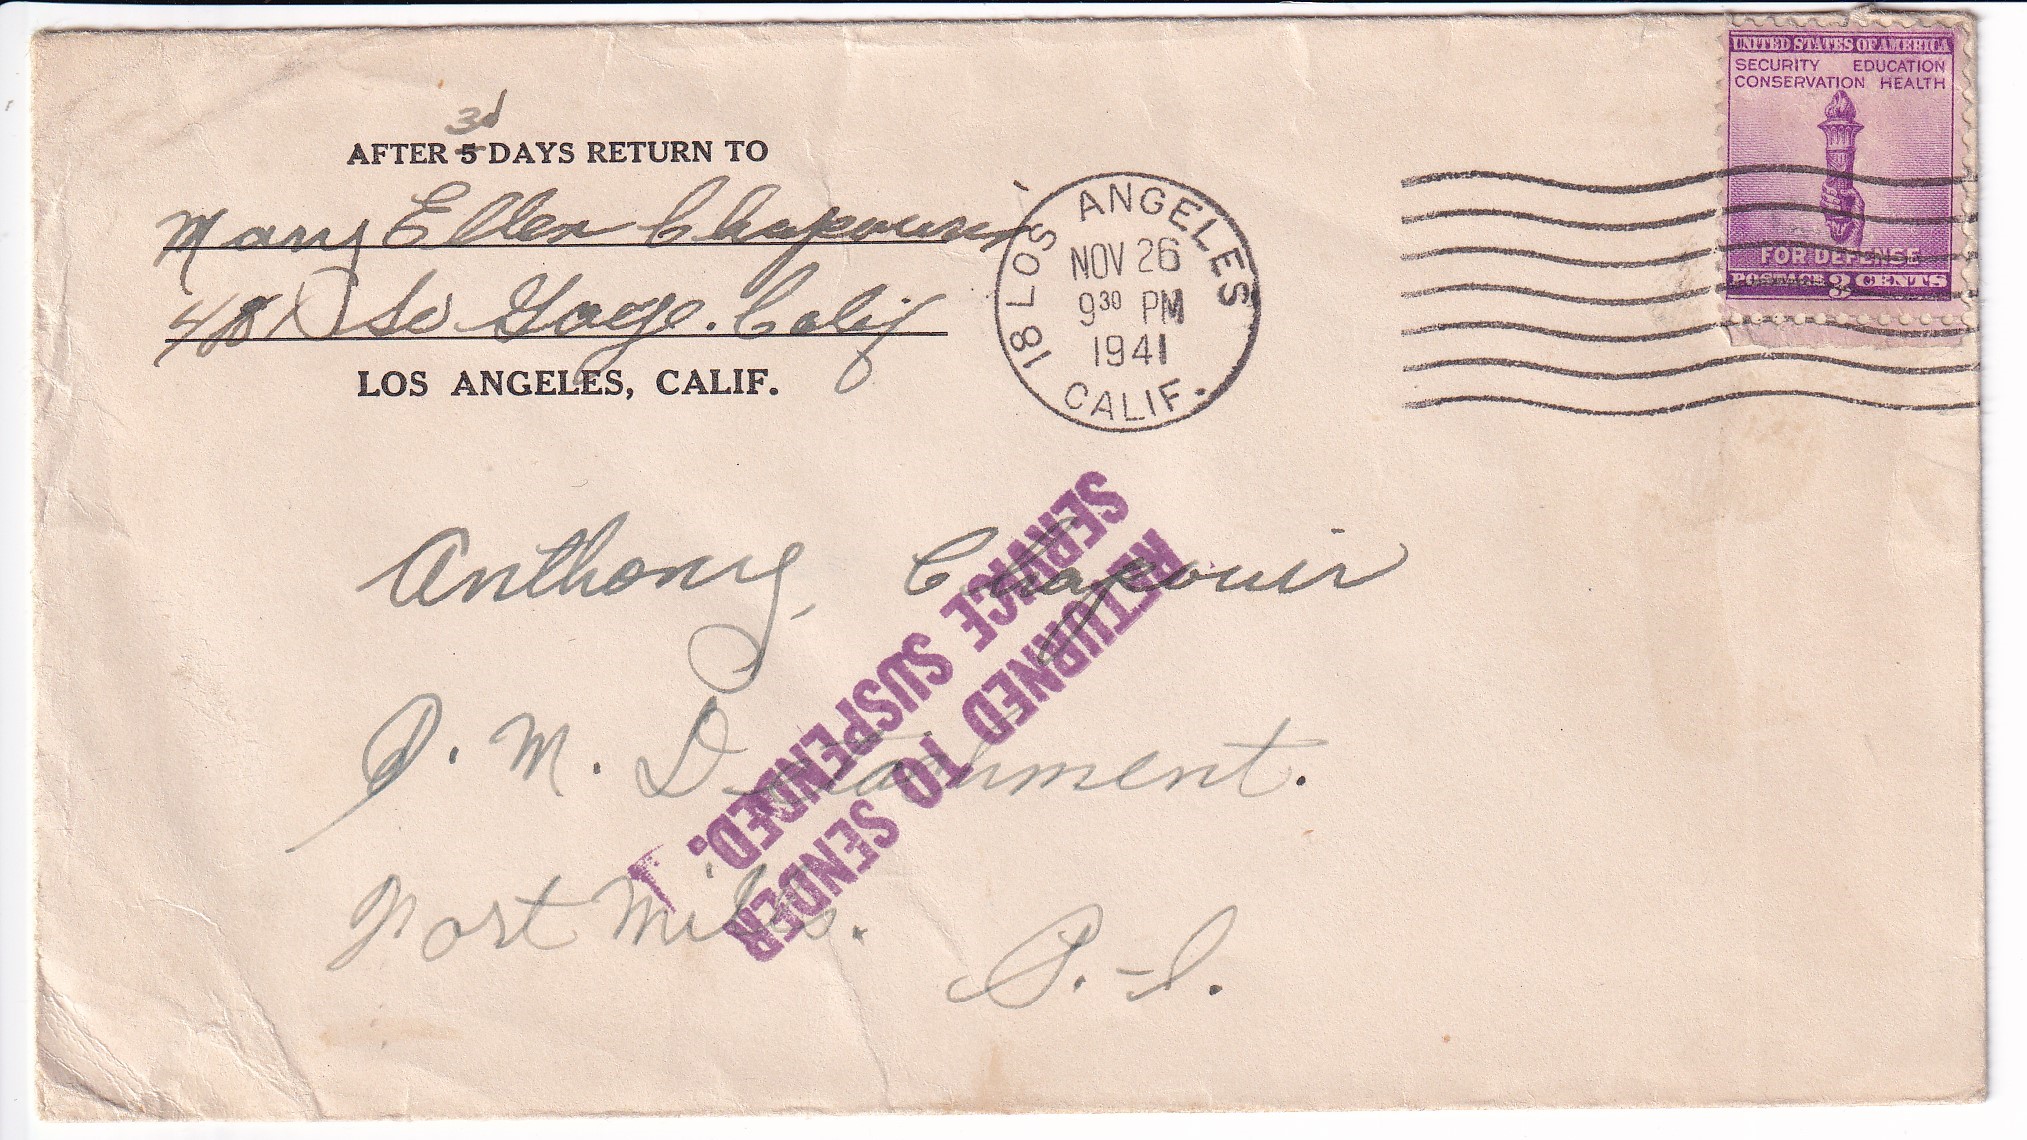 AFTER 5 DAYS RETURN TO
3d
Mary Ellen Chapouir
So Calif
LOS ANGELES, CALIF.
LOS ANGELES
18 CALIF.
NOV 26
9 30 PM
1941
UNITED STATES OF AMERICA
SECURITY EDUCATION
CONSERVATION HEALTH
FOR DEFENSE
POSTAGE 3 CENTS
Anthony Chapouir
Q. M. Detachment.
Fort Mills. P.-I.
RETURNED TO SENDER
SERVICE SUSPENDED.